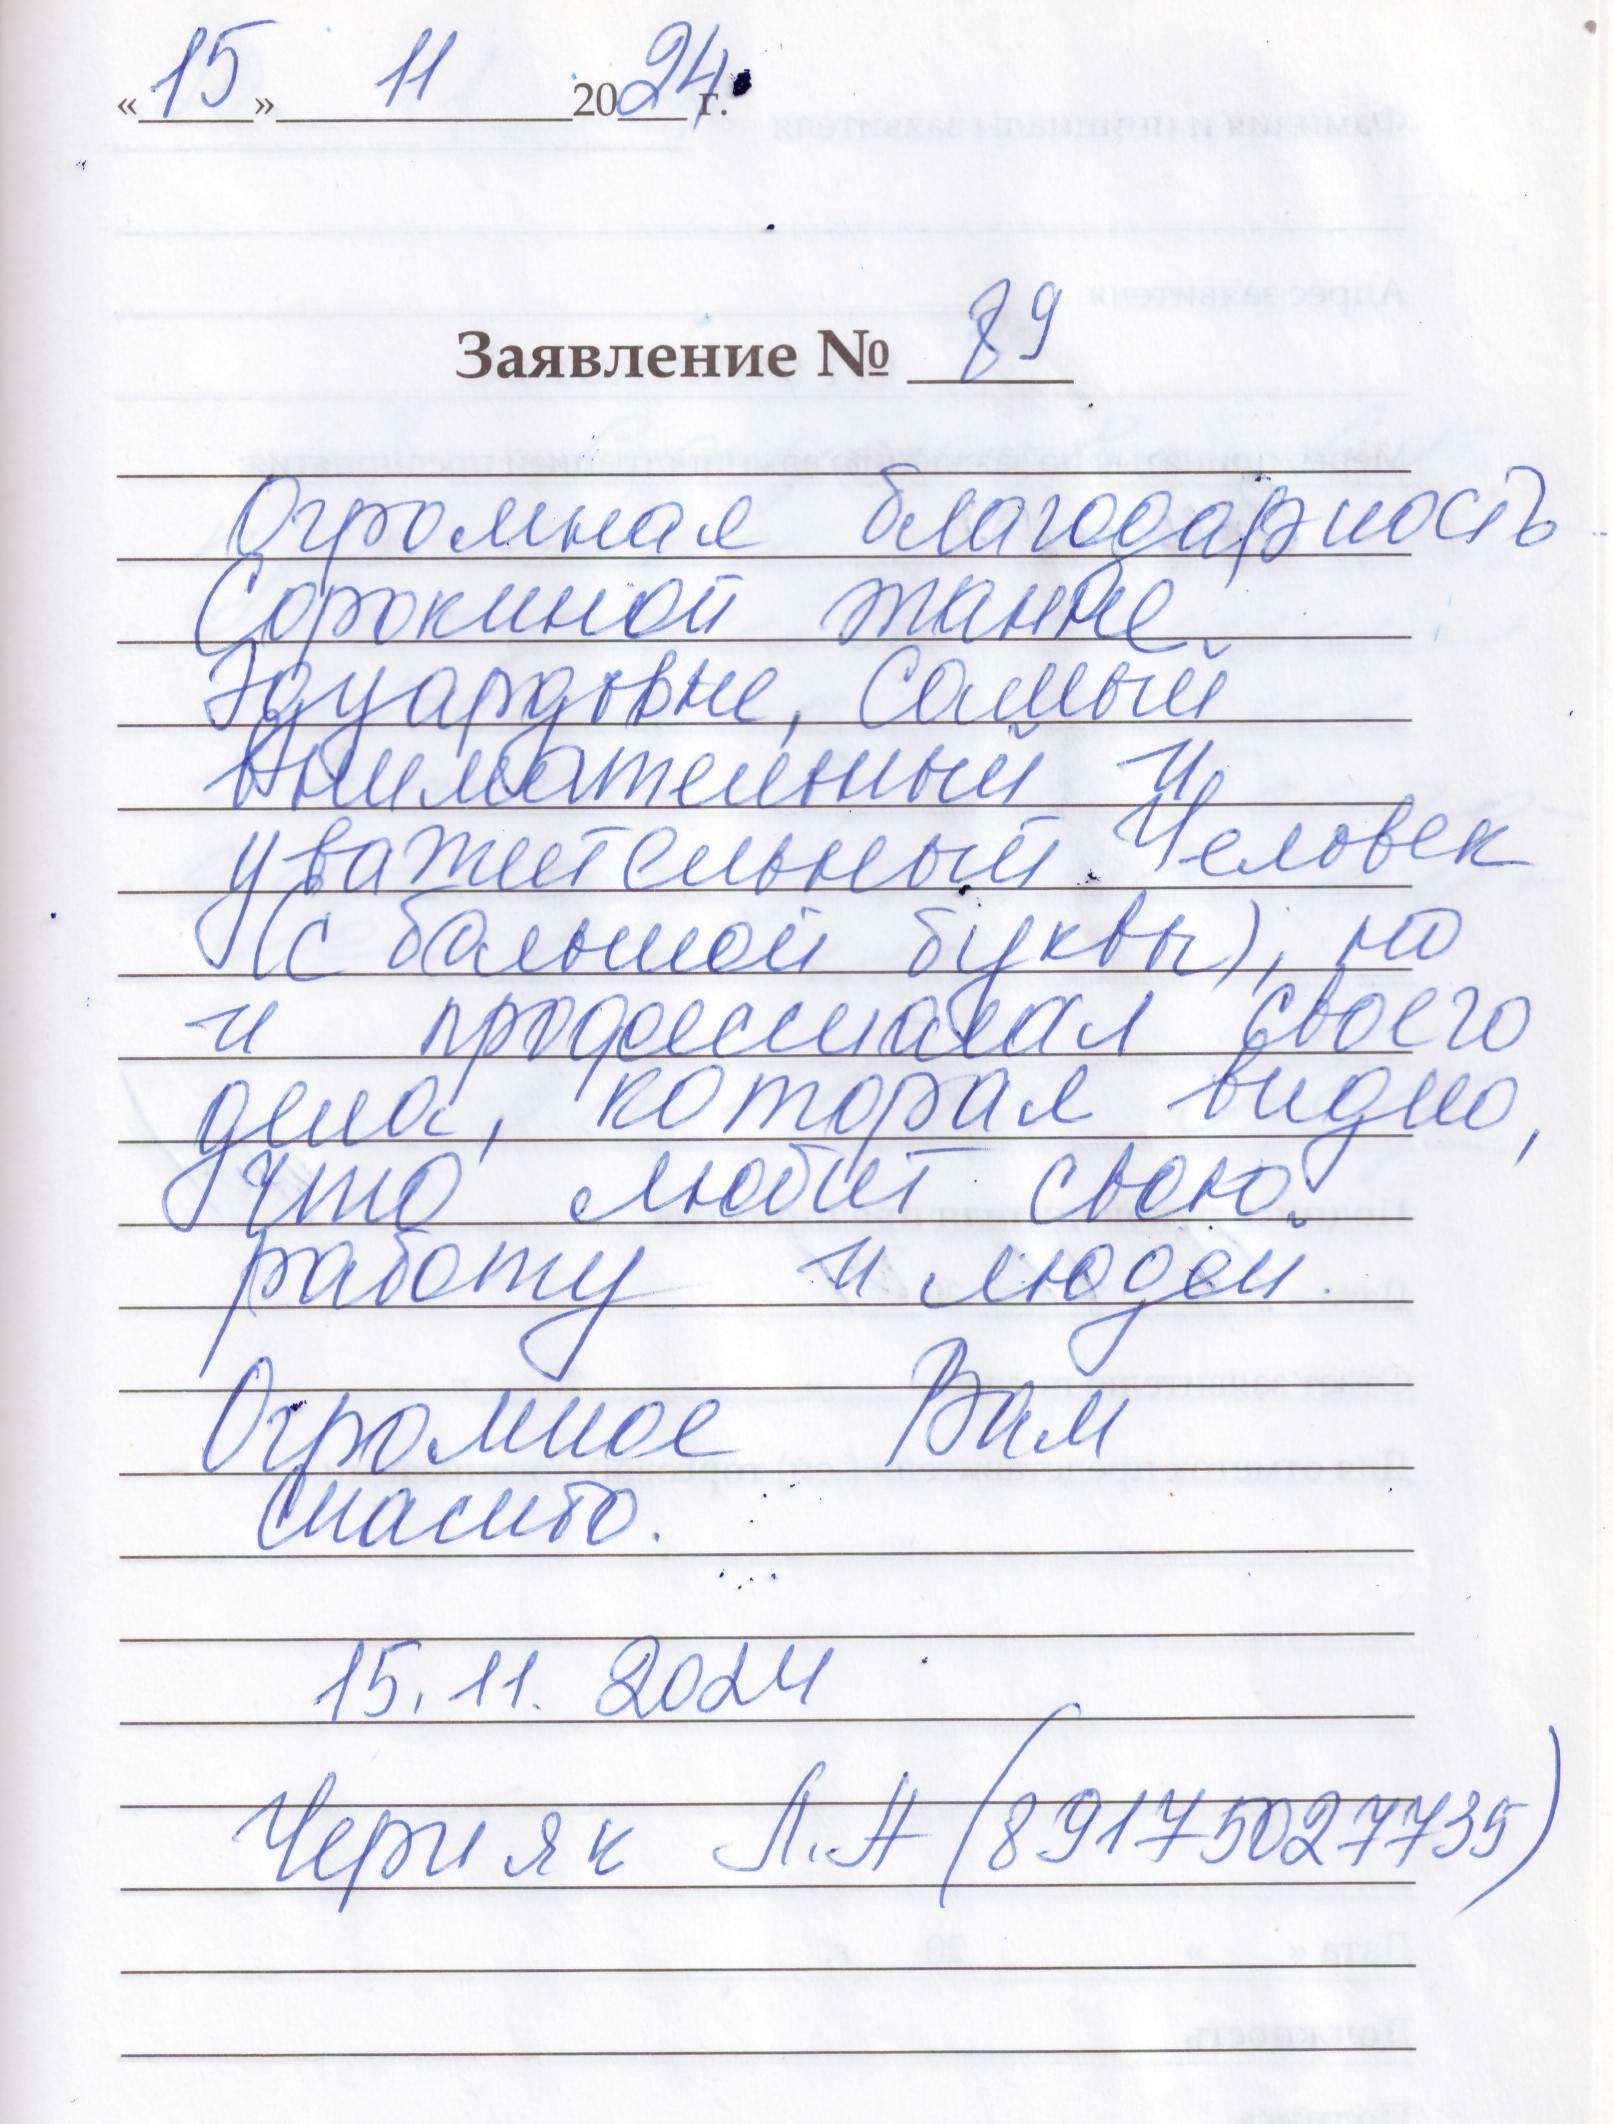 «15» 11 2024 г.
Заявление № 89
Огромная благодарность
Сорокиной Жанне
Эдуардовне, самый
внимательный и
уважительный Человек
(с большой буквы), но
и професионал своего
дела, которая видно,
что любит свою
работу и людей.
Огромное Вам
спасибо.
15.11.2024
Черняк Л.А (89175027735)